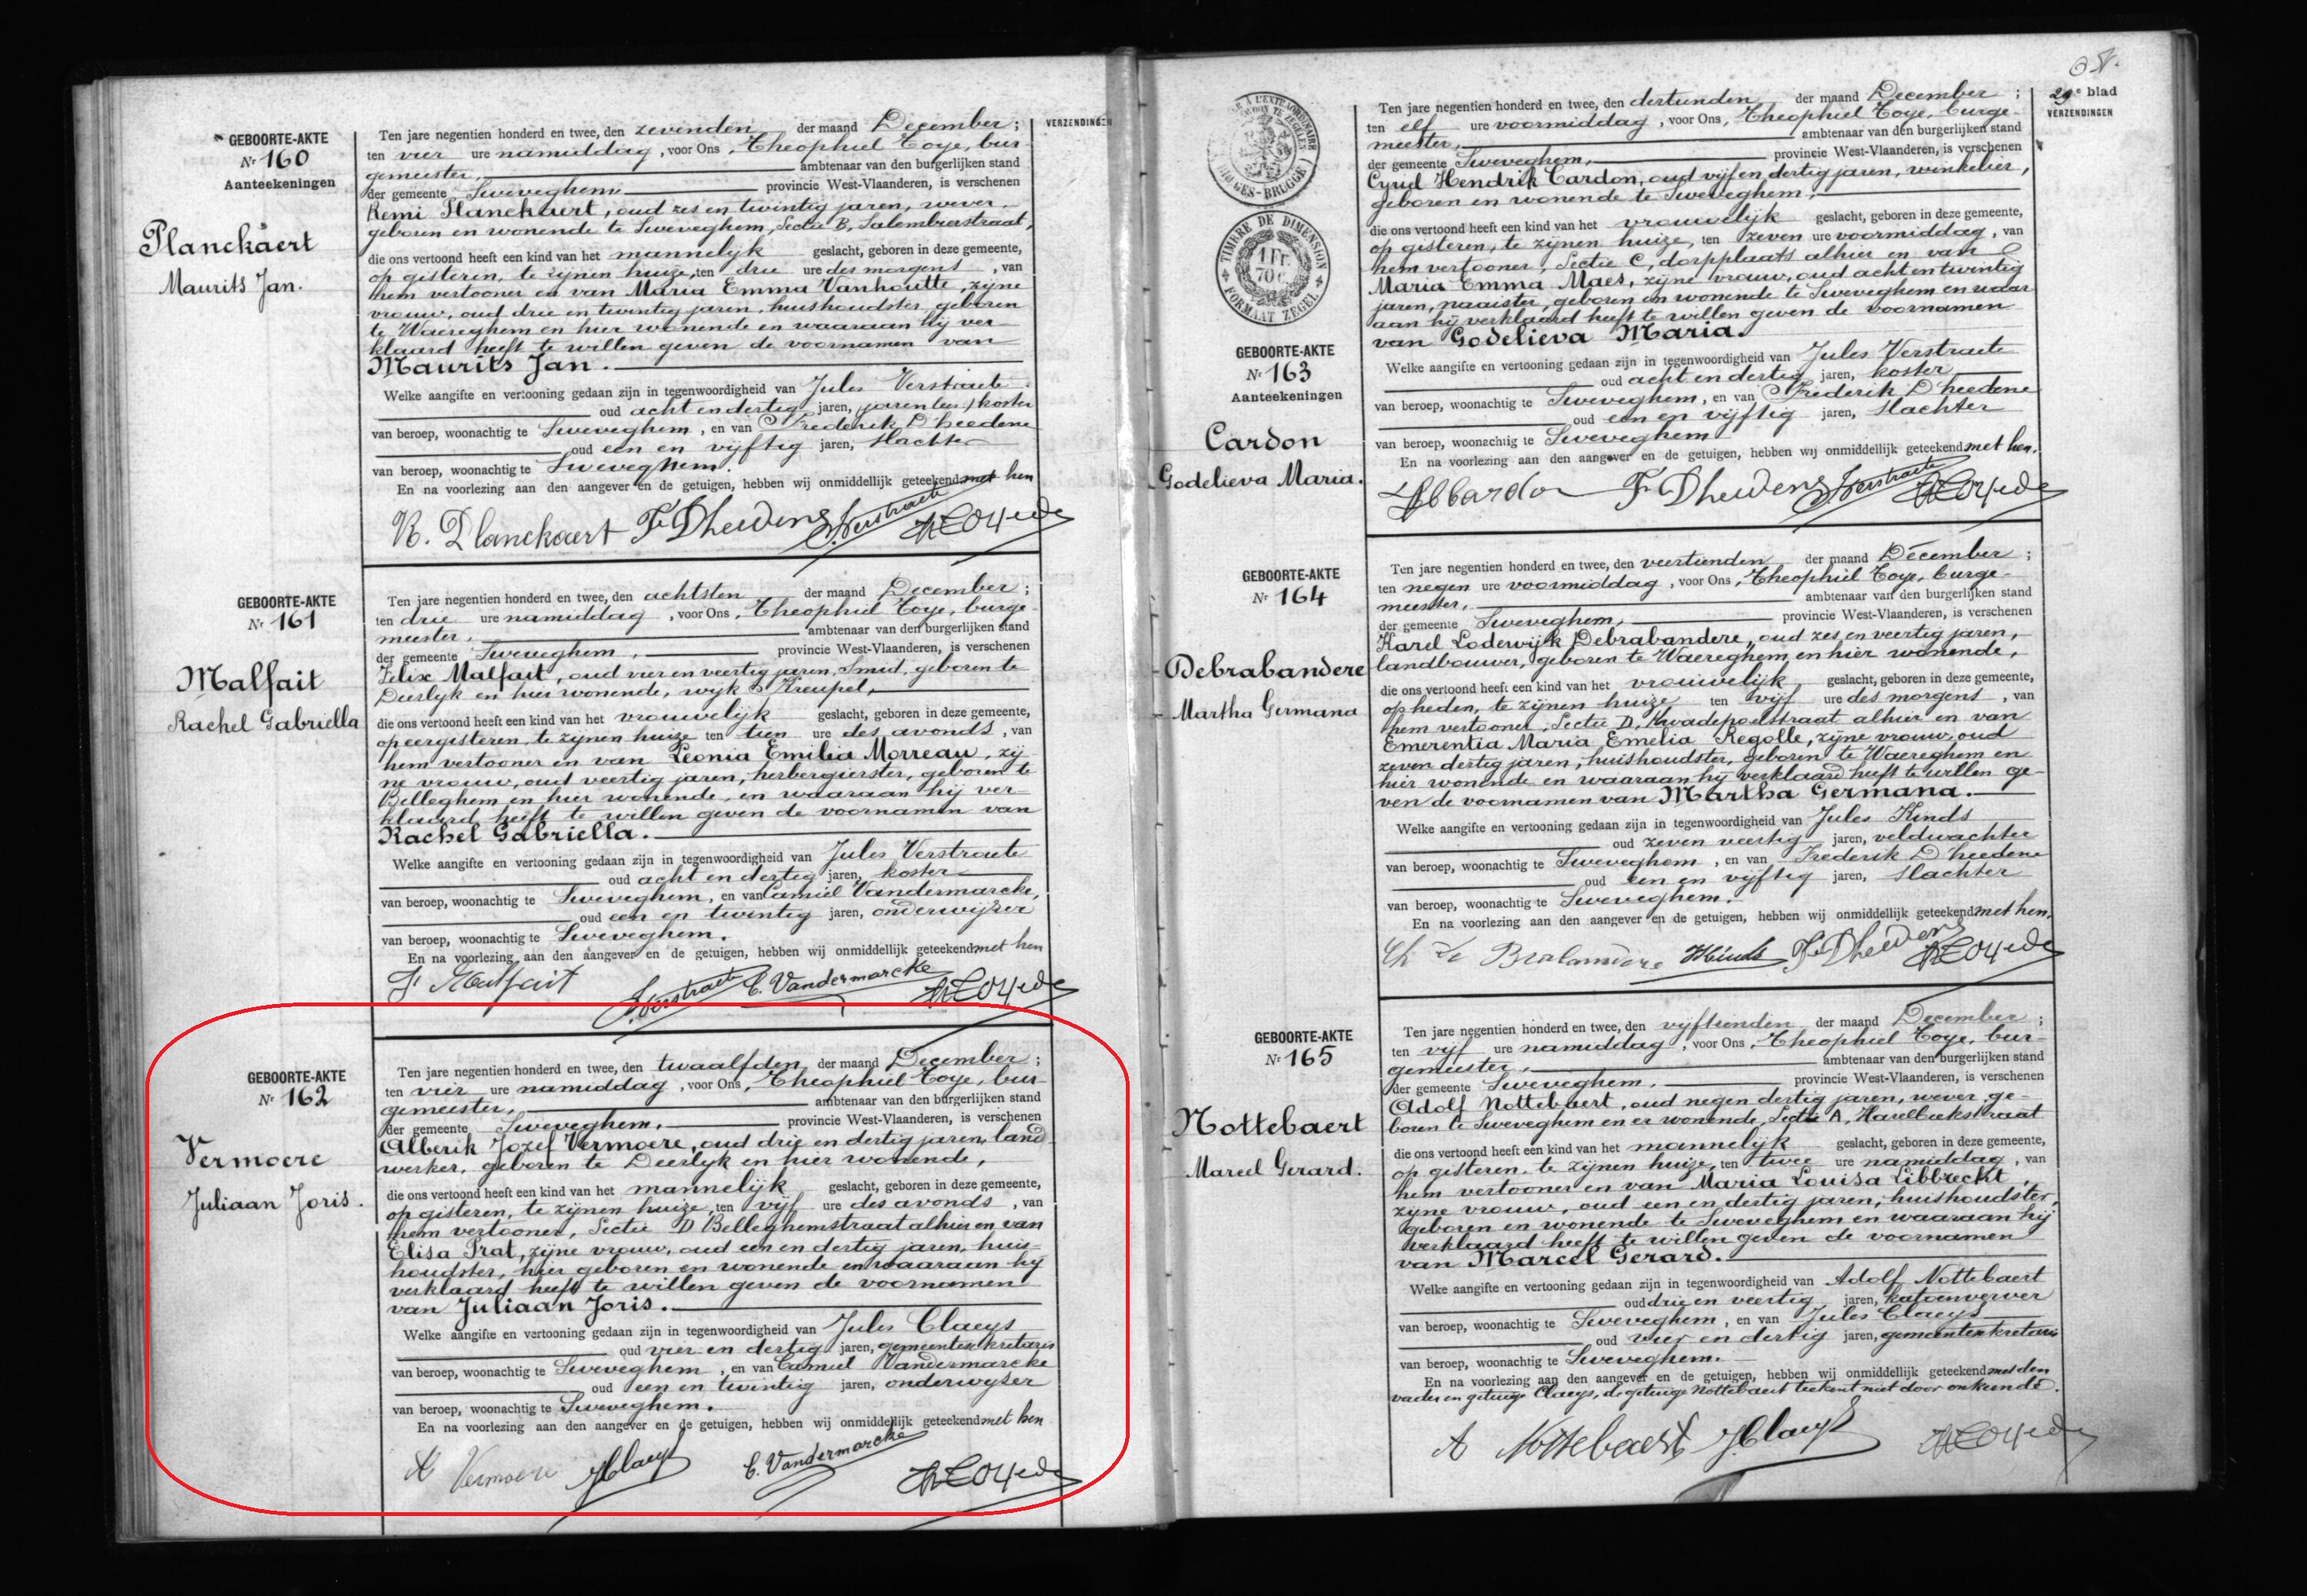 GEBOORTE-AKTE
Nr 160
Aanteekeningen
Planckaert
Maurits Jan.
VERZENDINGEN
Ten jare negentien honderd en twee, den zevenden der maand December ;
ten vier ure namiddag , voor Ons , Theophiel Toye, bur-
gemeester, ambtenaar van den burgerlijken stand
der gemeente Sweveghem provincie West-Vlaanderen, is verschenen
Remi Planckaert, oud zes en twintig jaren, wever,
geboren en wonende te Sweveghem, Sectie B, Salembierstraat,
die ons vertoond heeft een kind van het mannelyk geslacht, geboren in deze gemeente,
op gisteren, te zijnen huize, ten drie ure des morgens , van
hem vertooner en van Maria Emma Vanhoutte, zijne
vrouw, oud drie en twintig jaren, huishoudster, geboren
te Waereghem en hier wonende en waaraan hij ver-
klaard heeft te willen geven de voornamen van
Maurits Jan.
Welke aangifte en vertooning gedaan zijn in tegenwoordigheid van Jules Verstraete
oud acht en dertig jaren, (jaren lees) koster
van beroep, woonachtig te Sweveghem , en van Frederik D'heedene
oud een en vijftig jaren, slachter
van beroep, woonachtig te Sweveghem.
En na voorlezing aan den aangever en de getuigen, hebben wij onmiddellijk geteekend met hen
R. Planckaert F. Dheedene J. Verstraete
GEBOORTE-AKTE
Nr 161
Malfait
Rachel Gabriella
Ten jare negentien honderd en twee, den achtsten der maand December ;
ten drie ure namiddag , voor Ons , Theophiel Toye, burge-
meester, ambtenaar van den burgerlijken stand
der gemeente Sweveghem , provincie West-Vlaanderen, is verschenen
Felix Malfait, oud vier en veertig jaren, smid, geboren te
Deerlyk en hier wonende, wijk Kreupel,
die ons vertoond heeft een kind van het vrouwelyk geslacht, geboren in deze gemeente,
op eergisteren, te zijnen huize ten tien ure des avonds , van
hem vertooner en van Leonia Emilia Morreau, zij-
ne vrouw, oud veertig jaren, herbergierster, geboren te
Belleghem en hier wonende, en waaraan hij ver-
klaard heeft te willen geven de voornamen van
Rachel Gabriella.
Welke aangifte en vertooning gedaan zijn in tegenwoordigheid van Jules Verstraete
oud acht en dertig jaren, koster
van beroep, woonachtig te Sweveghem , en van Camiel Vandermarcke,
oud een en twintig jaren, onderwijzer
van beroep, woonachtig te Sweveghem.
En na voorlezing aan den aangever en de getuigen, hebben wij onmiddellijk geteekend met hen
F. Malfait J. Verstraete C. Vandermarcke
GEBOORTE-AKTE
Nr 162
Vermoere
Juliaan Joris.
Ten jare negentien honderd en twee, den twaalfden der maand December ;
ten vier ure namiddag , voor Ons , Theophiel Toye, bur-
gemeester, ambtenaar van den burgerlijken stand
der gemeente Sweveghem. provincie West-Vlaanderen, is verschenen
Alberik Jozef Vermoere, oud drie en dertig jaren, land-
werker, geboren te Deerlyk en hier wonende,
die ons vertoond heeft een kind van het mannelyk geslacht, geboren in deze gemeente,
op gisteren, te zijnen huize, ten vijf ure des avonds , van
hem vertooner, Sectie D Belleghemstraat alhier en van
Elisa Prat, zijne vrouw, oud een en dertig jaren, huis-
houdster, hier geboren en wonende en waaraan hij
verklaard heeft te willen geven de voornamen
van Juliaan Joris.
Welke aangifte en vertooning gedaan zijn in tegenwoordigheid van Jules Claeys
oud vier en dertig jaren, gemeentesekretaris
van beroep, woonachtig te Sweveghem , en van Camiel Vandermarcke
oud een en twintig jaren, onderwyzer
van beroep, woonachtig te Sweveghem.
En na voorlezing aan den aangever en de getuigen, hebben wij onmiddellijk geteekend met hen
A Vermoere J Claeys C. Vandermarcke
29e blad
VERZENDINGEN
TIMBRE DE DIMENSION
1 Fr.
70 c.
FORMAAT ZEGEL
GEBOORTE-AKTE
Nr 163
Aanteekeningen
Cardon
Godelieva Maria.
Ten jare negentien honderd en twee, den dertienden der maand December ;
ten elf ure voormiddag , voor Ons , Theophiel Toye, burge-
meester, ambtenaar van den burgerlijken stand
der gemeente Sweveghem, provincie West-Vlaanderen, is verschenen
Cyriel Hendrik Cardon, oud vijf en dertig jaren, winkelier,
geboren en wonende te Sweveghem,
die ons vertoond heeft een kind van het vrouwelijk geslacht, geboren in deze gemeente,
op gisteren, te zijnen huize, ten zeven ure voormiddag , van
hem vertooner, Sectie C, dorpplaats alhier en van
Maria Emma Maes, zijne vrouw, oud acht en twintig
jaren, naaister, geboren en wonende te Sweveghem en waar-
aan hij verklaard heeft te willen geven de voornamen
van Godelieva Maria.
Welke aangifte en vertooning gedaan zijn in tegenwoordigheid van Jules Verstraete
oud acht en dertig jaren, koster
van beroep, woonachtig te Sweveghem , en van Frederik D'heedene
oud een en vijftig jaren, slachter
van beroep, woonachtig te Sweveghem
En na voorlezing aan den aangever en de getuigen, hebben wij onmiddellijk geteekend met hen.
Cardon F. Dheedene J. Verstraete
GEBOORTE-AKTE
Nr 164
Debrabandere
Martha Germana
Ten jare negentien honderd en twee, den veertienden der maand December ;
ten negen ure voormiddag , voor Ons , Theophiel Toye, burge-
meester, ambtenaar van den burgerlijken stand
der gemeente Sweveghem, provincie West-Vlaanderen, is verschenen
Karel Lodewijk Debrabandere, oud zes en veertig jaren,
landbouwer, geboren te Waereghem en hier wonende,
die ons vertoond heeft een kind van het vrouwelijk geslacht, geboren in deze gemeente,
op heden, te zijnen huize ten vijf ure des morgens , van
hem vertooner, Sectie D, Kwadepoelstraat alhier en van
Emerentia Maria Emelia Regolle, zijne vrouw, oud
zeven dertig jaren, huishoudster, geboren te Waereghem en
hier wonende en waaraan hij verklaard heeft te willen ge-
ven de voornamen van Martha Germana.
Welke aangifte en vertooning gedaan zijn in tegenwoordigheid van Jules Hinds
oud zeven veertig jaren, veldwachter
van beroep, woonachtig te Sweveghem , en van Frederik D'heedene
oud een en vijftig jaren, slachter
van beroep, woonachtig te Sweveghem.
En na voorlezing aan den aangever en de getuigen, hebben wij onmiddellijk geteekend met hen.
Ch De Brabandere Hinds F. Dheedene
GEBOORTE-AKTE
Nr 165
Nottebaert
Marcel Gerard.
Ten jare negentien honderd en twee, den vijftienden der maand December ;
ten vijf ure namiddag , voor Ons , Theophiel Toye, bur-
gemeester, ambtenaar van den burgerlijken stand
der gemeente Sweveghem, provincie West-Vlaanderen, is verschenen
Adolf Nottebaert, oud negen dertig jaren, wever, ge-
boren te Sweveghem en er wonende, Sectie A, Harelbekstraat
die ons vertoond heeft een kind van het mannelyk geslacht, geboren in deze gemeente,
op gisteren, te zijnen huize, ten twee ure namiddag , van
hem vertooner en van Maria Louisa Libbrecht,
zijne vrouw, oud een en dertig jaren, huishoudster,
geboren en wonende te Sweveghem en waaraan hij
verklaard heeft te willen geven de voornamen
van Marcel Gerard.
Welke aangifte en vertooning gedaan zijn in tegenwoordigheid van Adolf Nottebaert
oud drie en veertig jaren, katoenverver
van beroep, woonachtig te Sweveghem , en van Jules Claeys
oud vier en dertig jaren, gemeentesekretaris
van beroep, woonachtig te Sweveghem.
En na voorlezing aan den aangever en de getuigen, hebben wij onmiddellijk geteekend met den
vader en getuige Claeys, de getuige Nottebaert teekent niet door onkunde.
A Nottebaert J. Claeys